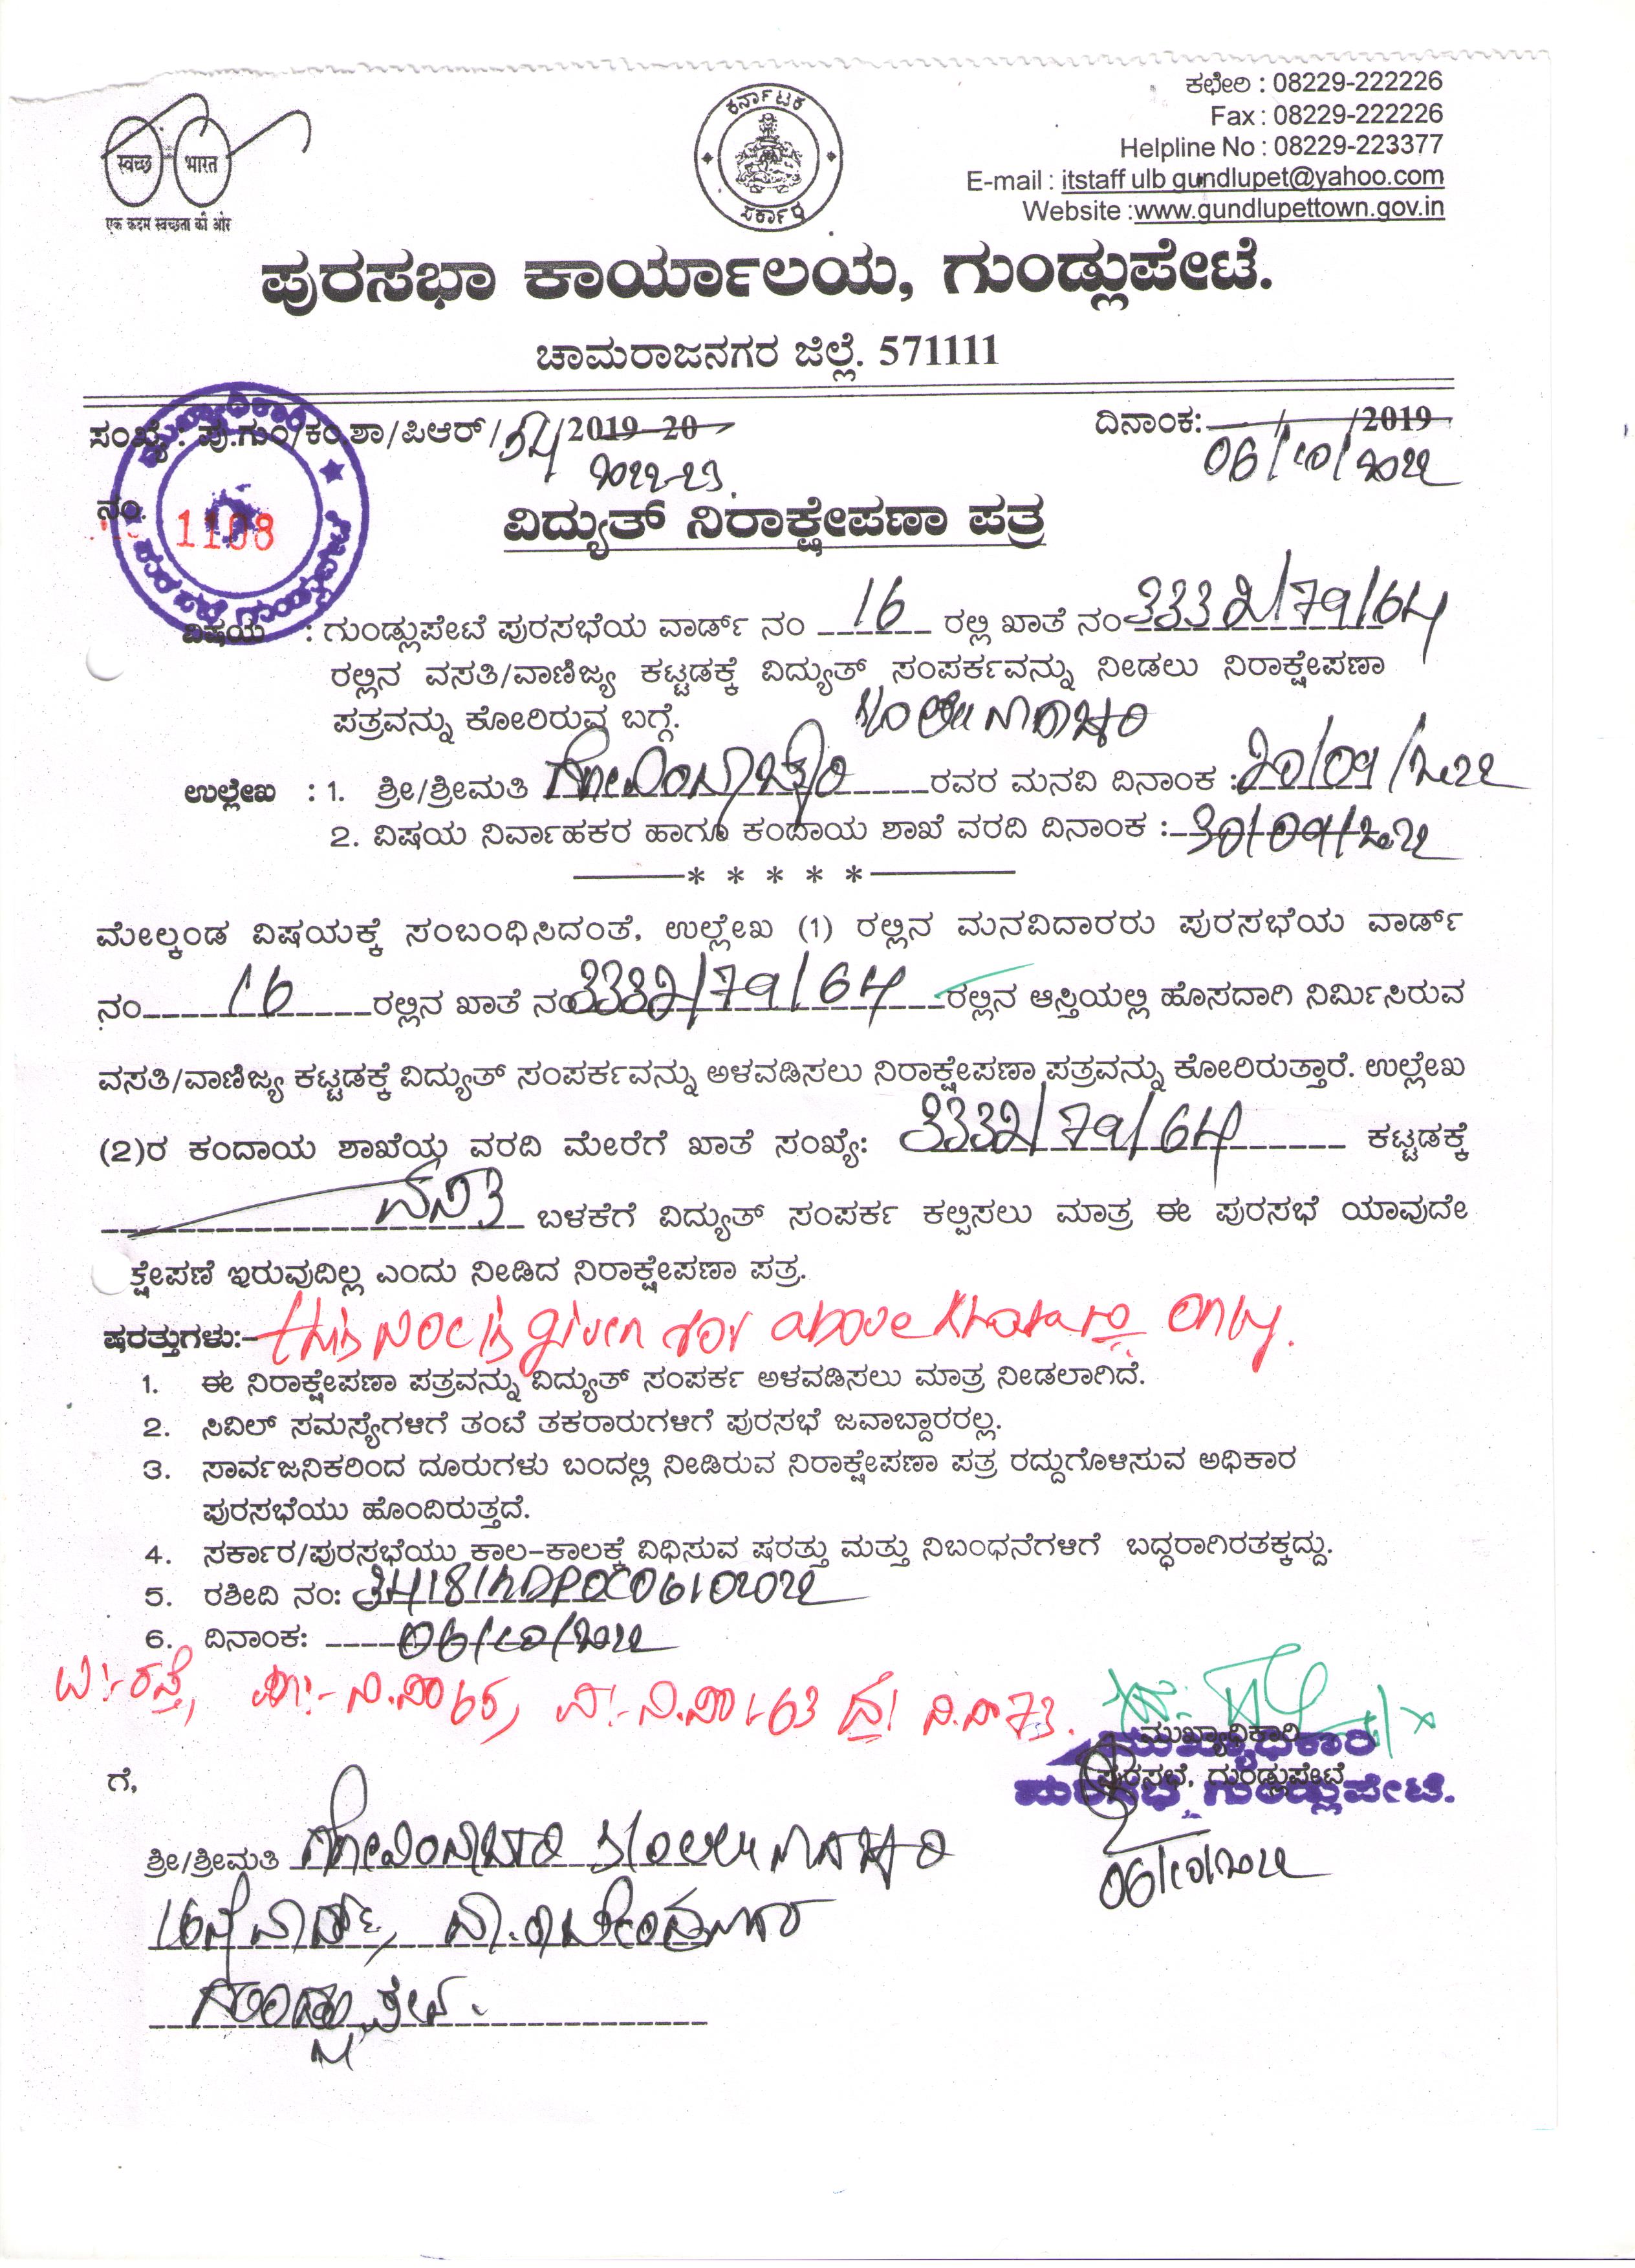 ಕಛೇರಿ : 08229-222226
Fax : 08229-222226
Helpline No : 08229-223377
E-mail : itstaff ulb gundlupet@yahoo.com
Website :www.gundlupettown.gov.in
स्वच्छ भारत
एक कदम स्वच्छता की ओर
ಕರ್ನಾಟಕ ಸರ್ಕಾರ
ಪುರಸಭಾ ಕಾರ್ಯಾಲಯ, ಗುಂಡ್ಲುಪೇಟೆ.
ಚಾಮರಾಜನಗರ ಜಿಲ್ಲೆ. 571111
ಸಂಖ್ಯೆ: ಪು.ಗುಂ/ಕಂ.ಶಾ/ಪಿಆರ್/ /2019-20
2022-23.
ದಿನಾಂಕ: / /2019
06/10/2022
ನಂ. 1108
ವಿದ್ಯುತ್ ನಿರಾಕ್ಷೇಪಣಾ ಪತ್ರ
ವಿಷಯ : ಗುಂಡ್ಲುಪೇಟೆ ಪುರಸಭೆಯ ವಾರ್ಡ್ ನಂ 16 ರಲ್ಲಿ ಖಾತೆ ನಂ 3332/79/64
ರಲ್ಲಿನ ವಸತಿ/ವಾಣಿಜ್ಯ ಕಟ್ಟಡಕ್ಕೆ ವಿದ್ಯುತ್ ಸಂಪರ್ಕವನ್ನು ನೀಡಲು ನಿರಾಕ್ಷೇಪಣಾ
ಪತ್ರವನ್ನು ಕೋರಿರುವ ಬಗ್ಗೆ.
ಉಲ್ಲೇಖ : 1. ಶ್ರೀ/ಶ್ರೀಮತಿ ಗೋವಿಂದಾಚಾರಿ ರವರ ಮನವಿ ದಿನಾಂಕ : 20/09/2022
2. ವಿಷಯ ನಿರ್ವಾಹಕರ ಹಾಗೂ ಕಂದಾಯ ಶಾಖೆ ವರದಿ ದಿನಾಂಕ : 30/09/2022
* * * * *
ಮೇಲ್ಕಂಡ ವಿಷಯಕ್ಕೆ ಸಂಬಂಧಿಸಿದಂತೆ, ಉಲ್ಲೇಖ (1) ರಲ್ಲಿನ ಮನವಿದಾರರು ಪುರಸಭೆಯ ವಾರ್ಡ್
ನಂ 16 ರಲ್ಲಿನ ಖಾತೆ ನಂ 3332/79/64 ರಲ್ಲಿನ ಆಸ್ತಿಯಲ್ಲಿ ಹೊಸದಾಗಿ ನಿರ್ಮಿಸಿರುವ
ವಸತಿ/ವಾಣಿಜ್ಯ ಕಟ್ಟಡಕ್ಕೆ ವಿದ್ಯುತ್ ಸಂಪರ್ಕವನ್ನು ಅಳವಡಿಸಲು ನಿರಾಕ್ಷೇಪಣಾ ಪತ್ರವನ್ನು ಕೋರಿರುತ್ತಾರೆ. ಉಲ್ಲೇಖ
(2)ರ ಕಂದಾಯ ಶಾಖೆಯ ವರದಿ ಮೇರೆಗೆ ಖಾತೆ ಸಂಖ್ಯೆ: 3332/79/64 ಕಟ್ಟಡಕ್ಕೆ
ವಸತಿ ಬಳಕೆಗೆ ವಿದ್ಯುತ್ ಸಂಪರ್ಕ ಕಲ್ಪಿಸಲು ಮಾತ್ರ ಈ ಪುರಸಭೆ ಯಾವುದೇ
ಕ್ಷೇಪಣೆ ಇರುವುದಿಲ್ಲ ಎಂದು ನೀಡಿದ ನಿರಾಕ್ಷೇಪಣಾ ಪತ್ರ.
ಷರತ್ತುಗಳು:- this NOC is given for above khata no only.
1. ಈ ನಿರಾಕ್ಷೇಪಣಾ ಪತ್ರವನ್ನು ವಿದ್ಯುತ್ ಸಂಪರ್ಕ ಅಳವಡಿಸಲು ಮಾತ್ರ ನೀಡಲಾಗಿದೆ.
2. ಸಿವಿಲ್ ಸಮಸ್ಯೆಗಳಿಗೆ ತಂಟೆ ತಕರಾರುಗಳಿಗೆ ಪುರಸಭೆ ಜವಾಬ್ದಾರರಲ್ಲ.
3. ಸಾರ್ವಜನಿಕರಿಂದ ದೂರುಗಳು ಬಂದಲ್ಲಿ ನೀಡಿರುವ ನಿರಾಕ್ಷೇಪಣಾ ಪತ್ರ ರದ್ದುಗೊಳಿಸುವ ಅಧಿಕಾರ
ಪುರಸಭೆಯು ಹೊಂದಿರುತ್ತದೆ.
4. ಸರ್ಕಾರ/ಪುರಸಭೆಯು ಕಾಲ-ಕಾಲಕ್ಕೆ ವಿಧಿಸುವ ಷರತ್ತು ಮತ್ತು ನಿಬಂಧನೆಗಳಿಗೆ ಬದ್ಧರಾಗಿರತಕ್ಕದ್ದು.
5. ರಶೀದಿ ನಂ:
6. ದಿನಾಂಕ: 06/10/2022
ಮುಖ್ಯಾಧಿಕಾರಿ
ಮುಖ್ಯಾಧಿಕಾರಿ
ಪುರಸಭೆ, ಗುಂಡ್ಲುಪೇಟೆ
ಪುರಸಭೆ, ಗುಂಡ್ಲುಪೇಟೆ.
06/10/2022
ಗೆ,
ಶ್ರೀ/ಶ್ರೀಮತಿ ಗೋವಿಂದಾಚಾರಿ
16ನೆ ವಾರ್ಡ್,
ಗುಂಡ್ಲುಪೇಟೆ.